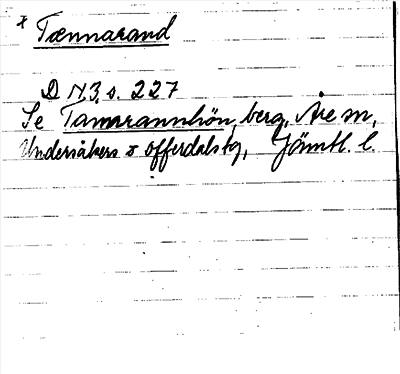 x Tænnarand
D N3, s. 227
Se Tamarannhön, berg, Åre sn,
Undersåkers o offerdals tg, Jämtl. l.